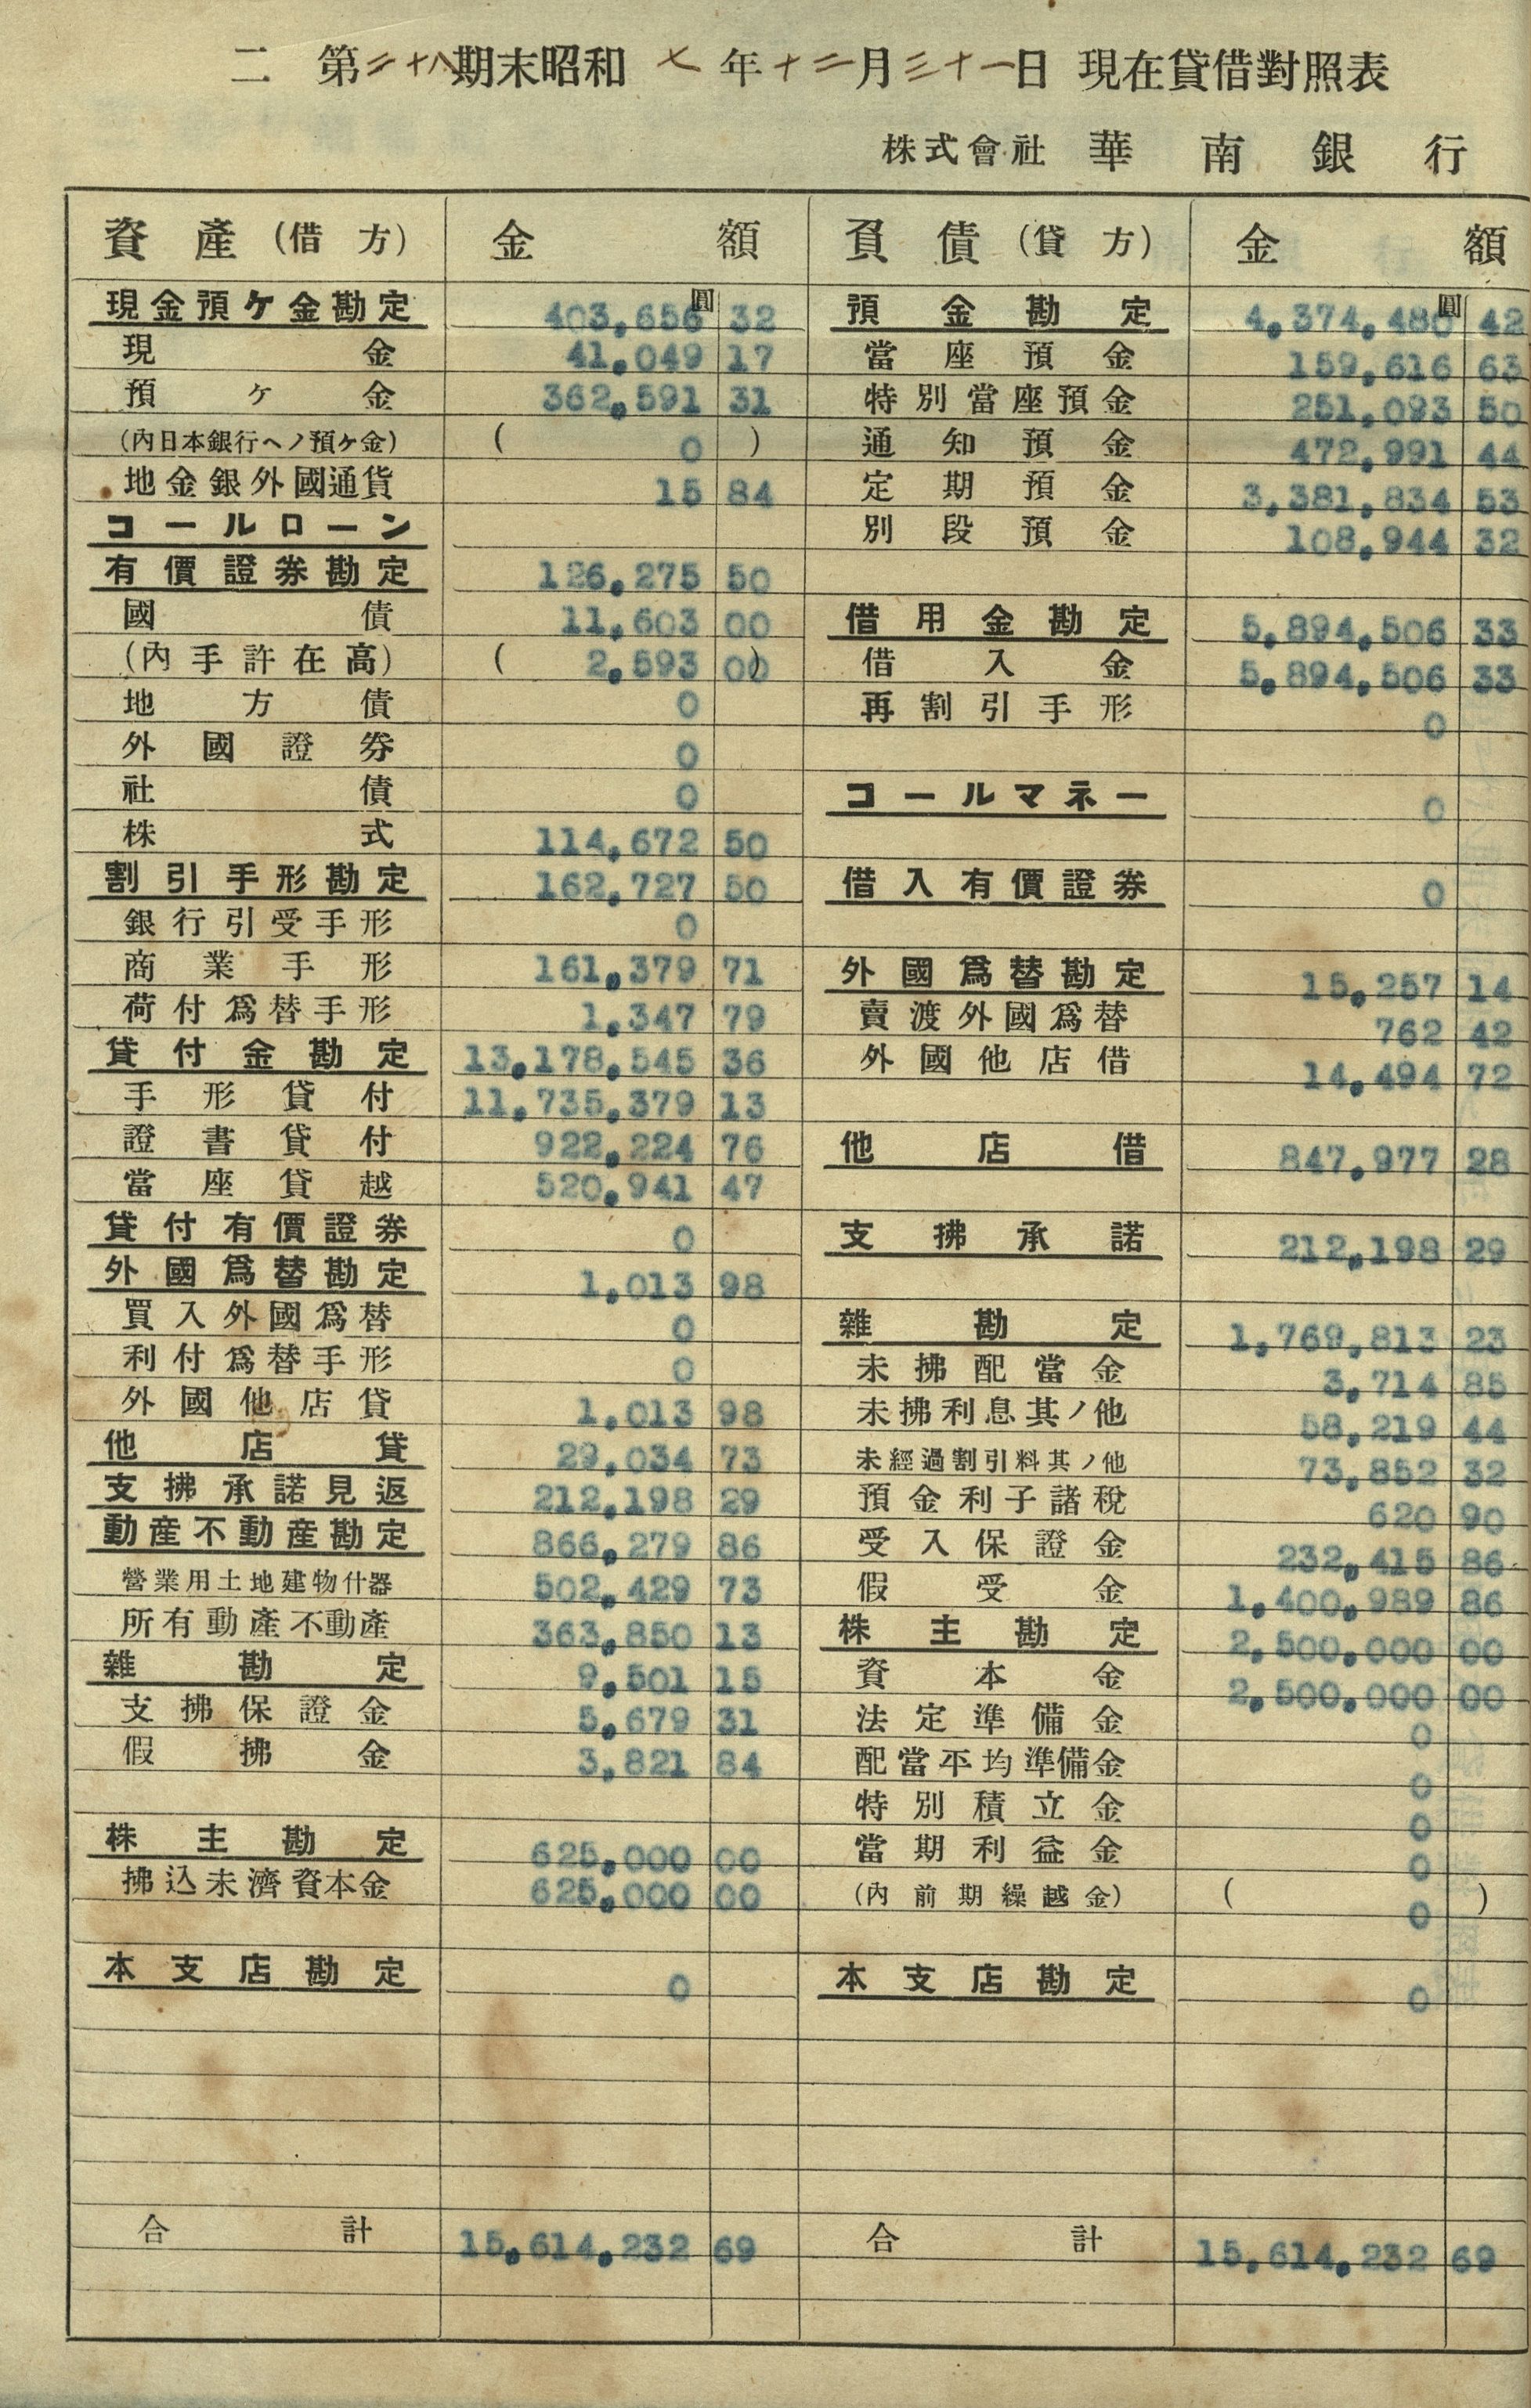 二 第二十八期末昭和 七 年十二月三十一日 現在貸借對照表
株式會社 華南銀行
資產(借方) 金額 負債(貸方) 金額
現金預ケ金勘定 403,656圓 32
現金 41,049 17
預ケ金 362,591 31
(內日本銀行ヘノ預ケ金) ( 0 )
地金銀外國通貨 15 84
コールローン
有價證券勘定 126,275 50
國債 11,603 00
(內手許在高) ( 2,593 00)
地方債 0
外國證券 0
社債 0
株式 114,672 50
割引手形勘定 162,727 50
銀行引受手形 0
商業手形 161,379 71
荷付爲替手形 1,347 79
貸付金勘定 13,178,545 36
手形貸付 11,735,379 13
證書貸付 922,224 76
當座貸越 520,941 47
貸付有價證券 0
外國爲替勘定 1,013 98
買入外國爲替 0
利付爲替手形 0
外國他店貸 1,013 98
他店貸 29,034 73
支拂承諾見返 212,198 29
動產不動產勘定 866,279 86
營業用土地建物什器 502,429 73
所有動產不動產 363,850 13
雜勘定 9,501 15
支拂保證金 5,679 31
假拂金 3,821 84
株主勘定 625,000 00
拂込未濟資本金 625,000 00
本支店勘定 0
合計 15,614,232 69
預金勘定 4,374,480圓 42
當座預金 159,616 63
特別當座預金 251,093 50
通知預金 472,991 44
定期預金 3,381,834 53
別段預金 108,944 32
借用金勘定 5,894,506 33
借入金 5,894,506 33
再割引手形 0
コールマネー 0
借入有價證券 0
外國爲替勘定 15,257 14
賣渡外國爲替 762 42
外國他店借 14,494 72
他店借 847,977 28
支拂承諾 212,198 29
雜勘定 1,769,813 23
未拂配當金 3,714 85
未拂利息其ノ他 58,219 44
未經過割引料其ノ他 73,852 32
預金利子諸稅 620 90
受入保證金 232,415 86
假受金 1,400,989 86
株主勘定 2,500,000 00
資本金 2,500,000 00
法定準備金 0
配當平均準備金 0
特別積立金 0
當期利益金 0
(內前期繰越金) ( 0 )
本支店勘定 0
合計 15,614,232 69